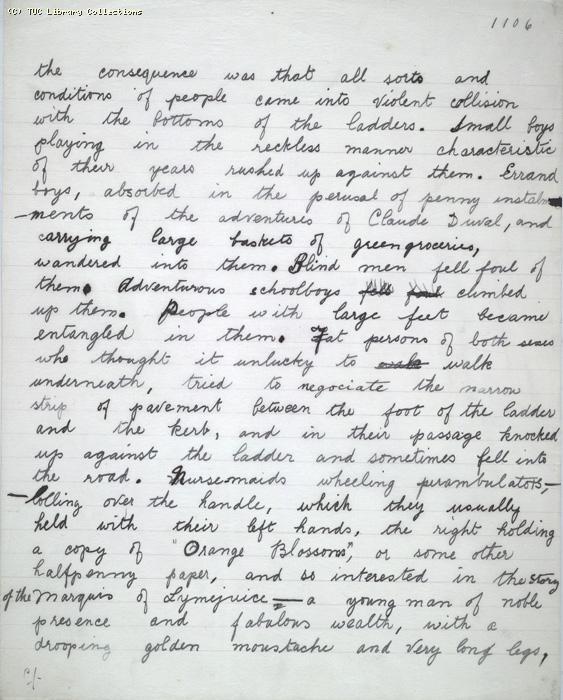 (C) TUC Library Collections
1106
the consequence was that all sorts and
conditions of people came into violent collision
with the bottoms of the ladders. Small boys
playing in the reckless manner characteristic
of their years rushed up against them. Errand
boys, absorbed in the perusal of penny instal
-ments of the adventures of Claude Duval, and
carrying large baskets of green groceries,
wandered into them. Blind men fell foul of
them. Adventurous schoolboys fell foul climbed
up them. People with large feet became
entangled in them. Fat persons of both sexes
who thought it unlucky to walk
underneath, tried to negociate the narrow
strip of pavement between the foot of the ladder
and the kerb, and in their passage knocked
up against the ladder and sometimes fell into
the road. Nursemaids wheeling perambulators,—
—lolling over the handle, which they usually
held with their left hands, the right holding
a copy of "Orange Blossoms", or some other
halfpenny paper, and so interested in the story
of the Marquis of Lymejuice — a young man of noble
presence and fabulous wealth, with a
drooping golden moustache and very long legs,